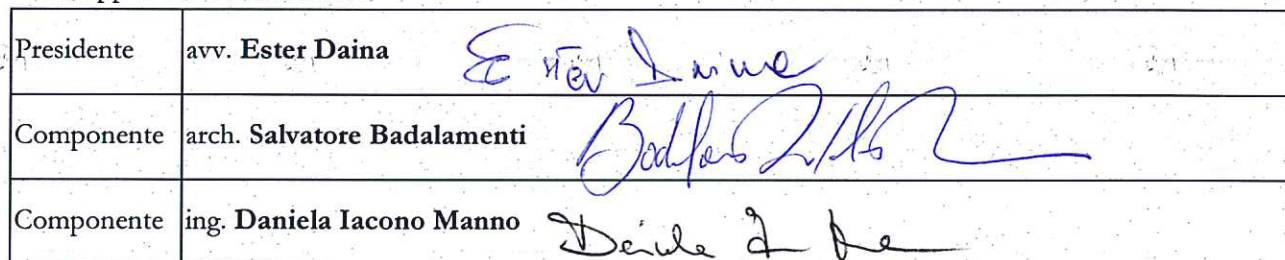 Presidente avv. Ester Daina Ester Daina
Componente arch. Salvatore Badalamenti
Componente ing. Daniela Iacono Manno